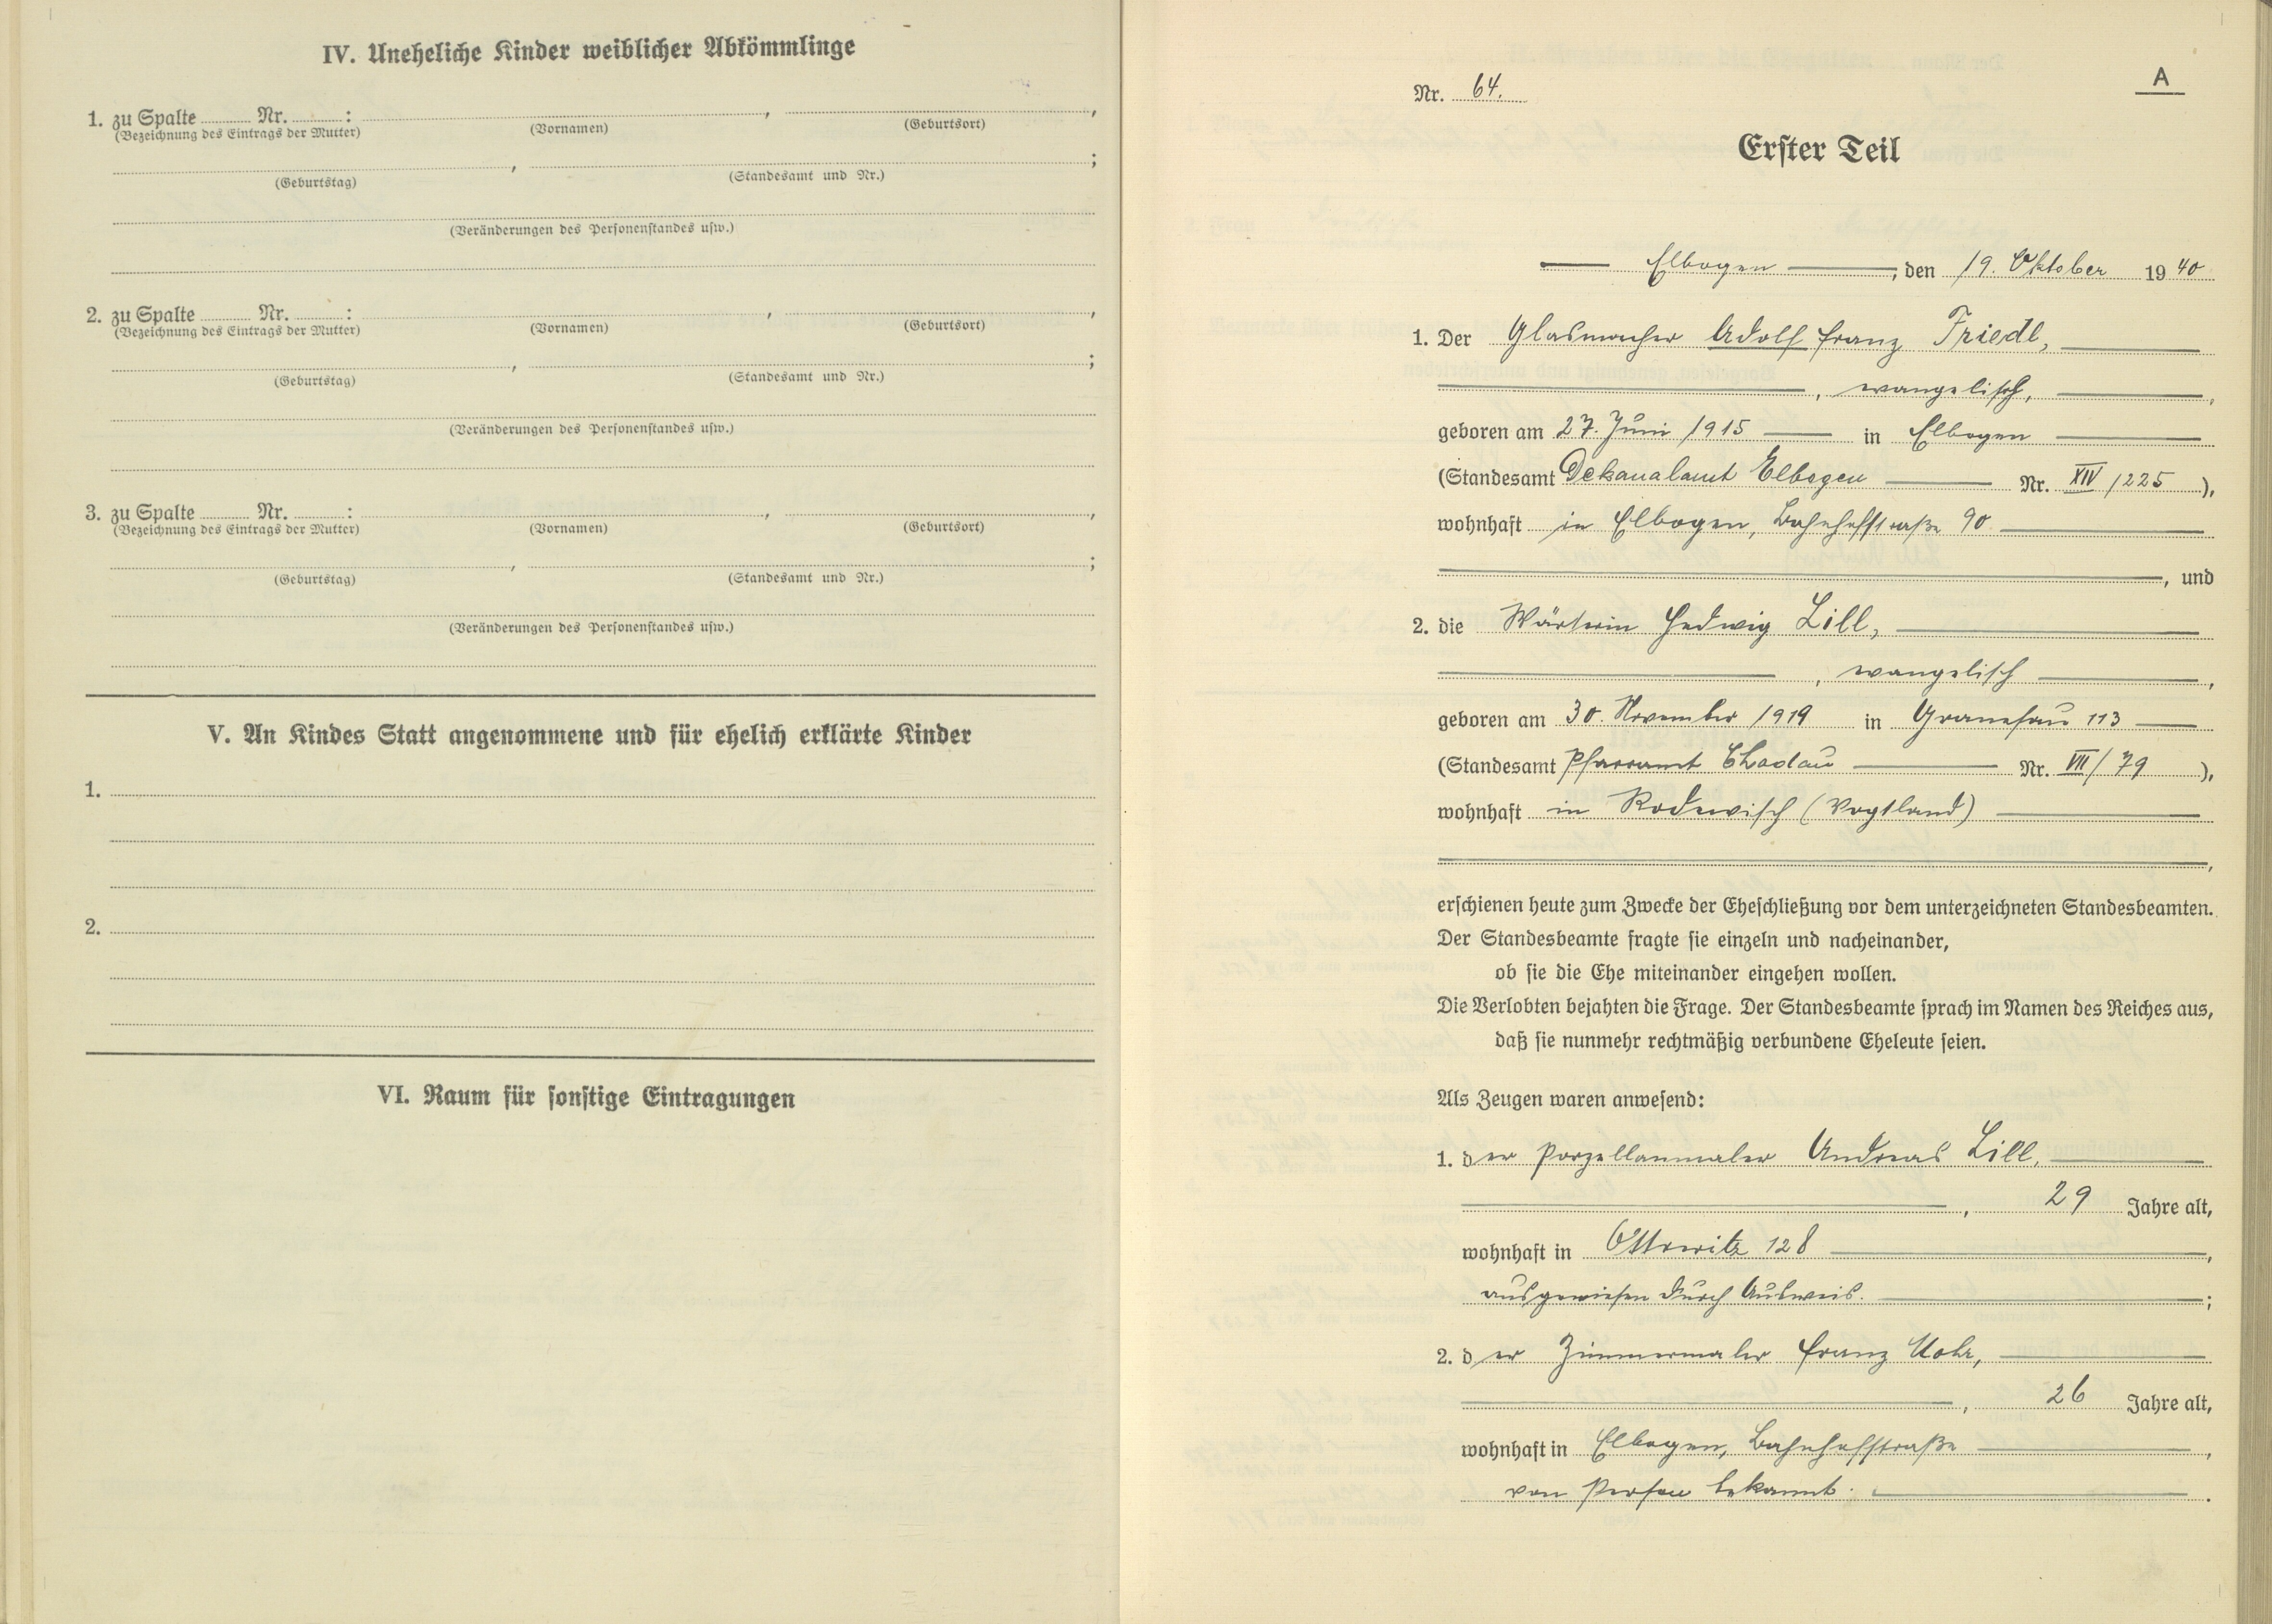 IV. Uneheliche Kinder weiblicher Abkömmlinge
1. zu Spalte ........ Nr. ........ : , ,
(Bezeichnung des Eintrags der Mutter) (Vornamen) (Geburtsort)
, ;
(Geburtstag) (Standesamt und Nr.)
(Veränderungen des Personenstandes usw.)
2. zu Spalte ........ Nr. ........ : , ,
(Bezeichnung des Eintrags der Mutter) (Vornamen) (Geburtsort)
, ;
(Geburtstag) (Standesamt und Nr.)
(Veränderungen des Personenstandes usw.)
3. zu Spalte ........ Nr. ........ : , ,
(Bezeichnung des Eintrags der Mutter) (Vornamen) (Geburtsort)
, ;
(Geburtstag) (Standesamt und Nr.)
(Veränderungen des Personenstandes usw.)
V. An Kindes Statt angenommene und für ehelich erklärte Kinder
1.
2.
VI. Raum für sonstige Eintragungen
A
Nr. 64.
Erster Teil
Elbogen, den 19. Oktober 1940
1. Der Glasmacher Adolf Franz Friedl,
, evangelisch,
geboren am 27. Juni 1915 in Elbogen
(Standesamt Dekanalamt Elbogen Nr. XIV/225),
wohnhaft in Elbogen, Bahnhofstraße 90
, und
2. die Wärterin Hedwig Lill,
, evangelisch,
geboren am 30. November 1919 in Granesau 113
(Standesamt Pfarramt Chodau Nr. VII/79),
wohnhaft in Rodewisch (Vogtland)
,
erschienen heute zum Zwecke der Eheschließung vor dem unterzeichneten Standesbeamten.
Der Standesbeamte fragte sie einzeln und nacheinander,
ob sie die Ehe miteinander eingehen wollen.
Die Verlobten bejahten die Frage. Der Standesbeamte sprach im Namen des Reiches aus,
daß sie nunmehr rechtmäßig verbundene Eheleute seien.
Als Zeugen waren anwesend:
1. der Porzellanmaler Andreas Lill,
, 29 Jahre alt,
wohnhaft in Ottowitz 128,
ausgewiesen durch Ausweis. ;
2. der Zimmermaler Franz
, 26 Jahre alt,
wohnhaft in Elbogen, Bahnhofstraße,
von Person bekannt.